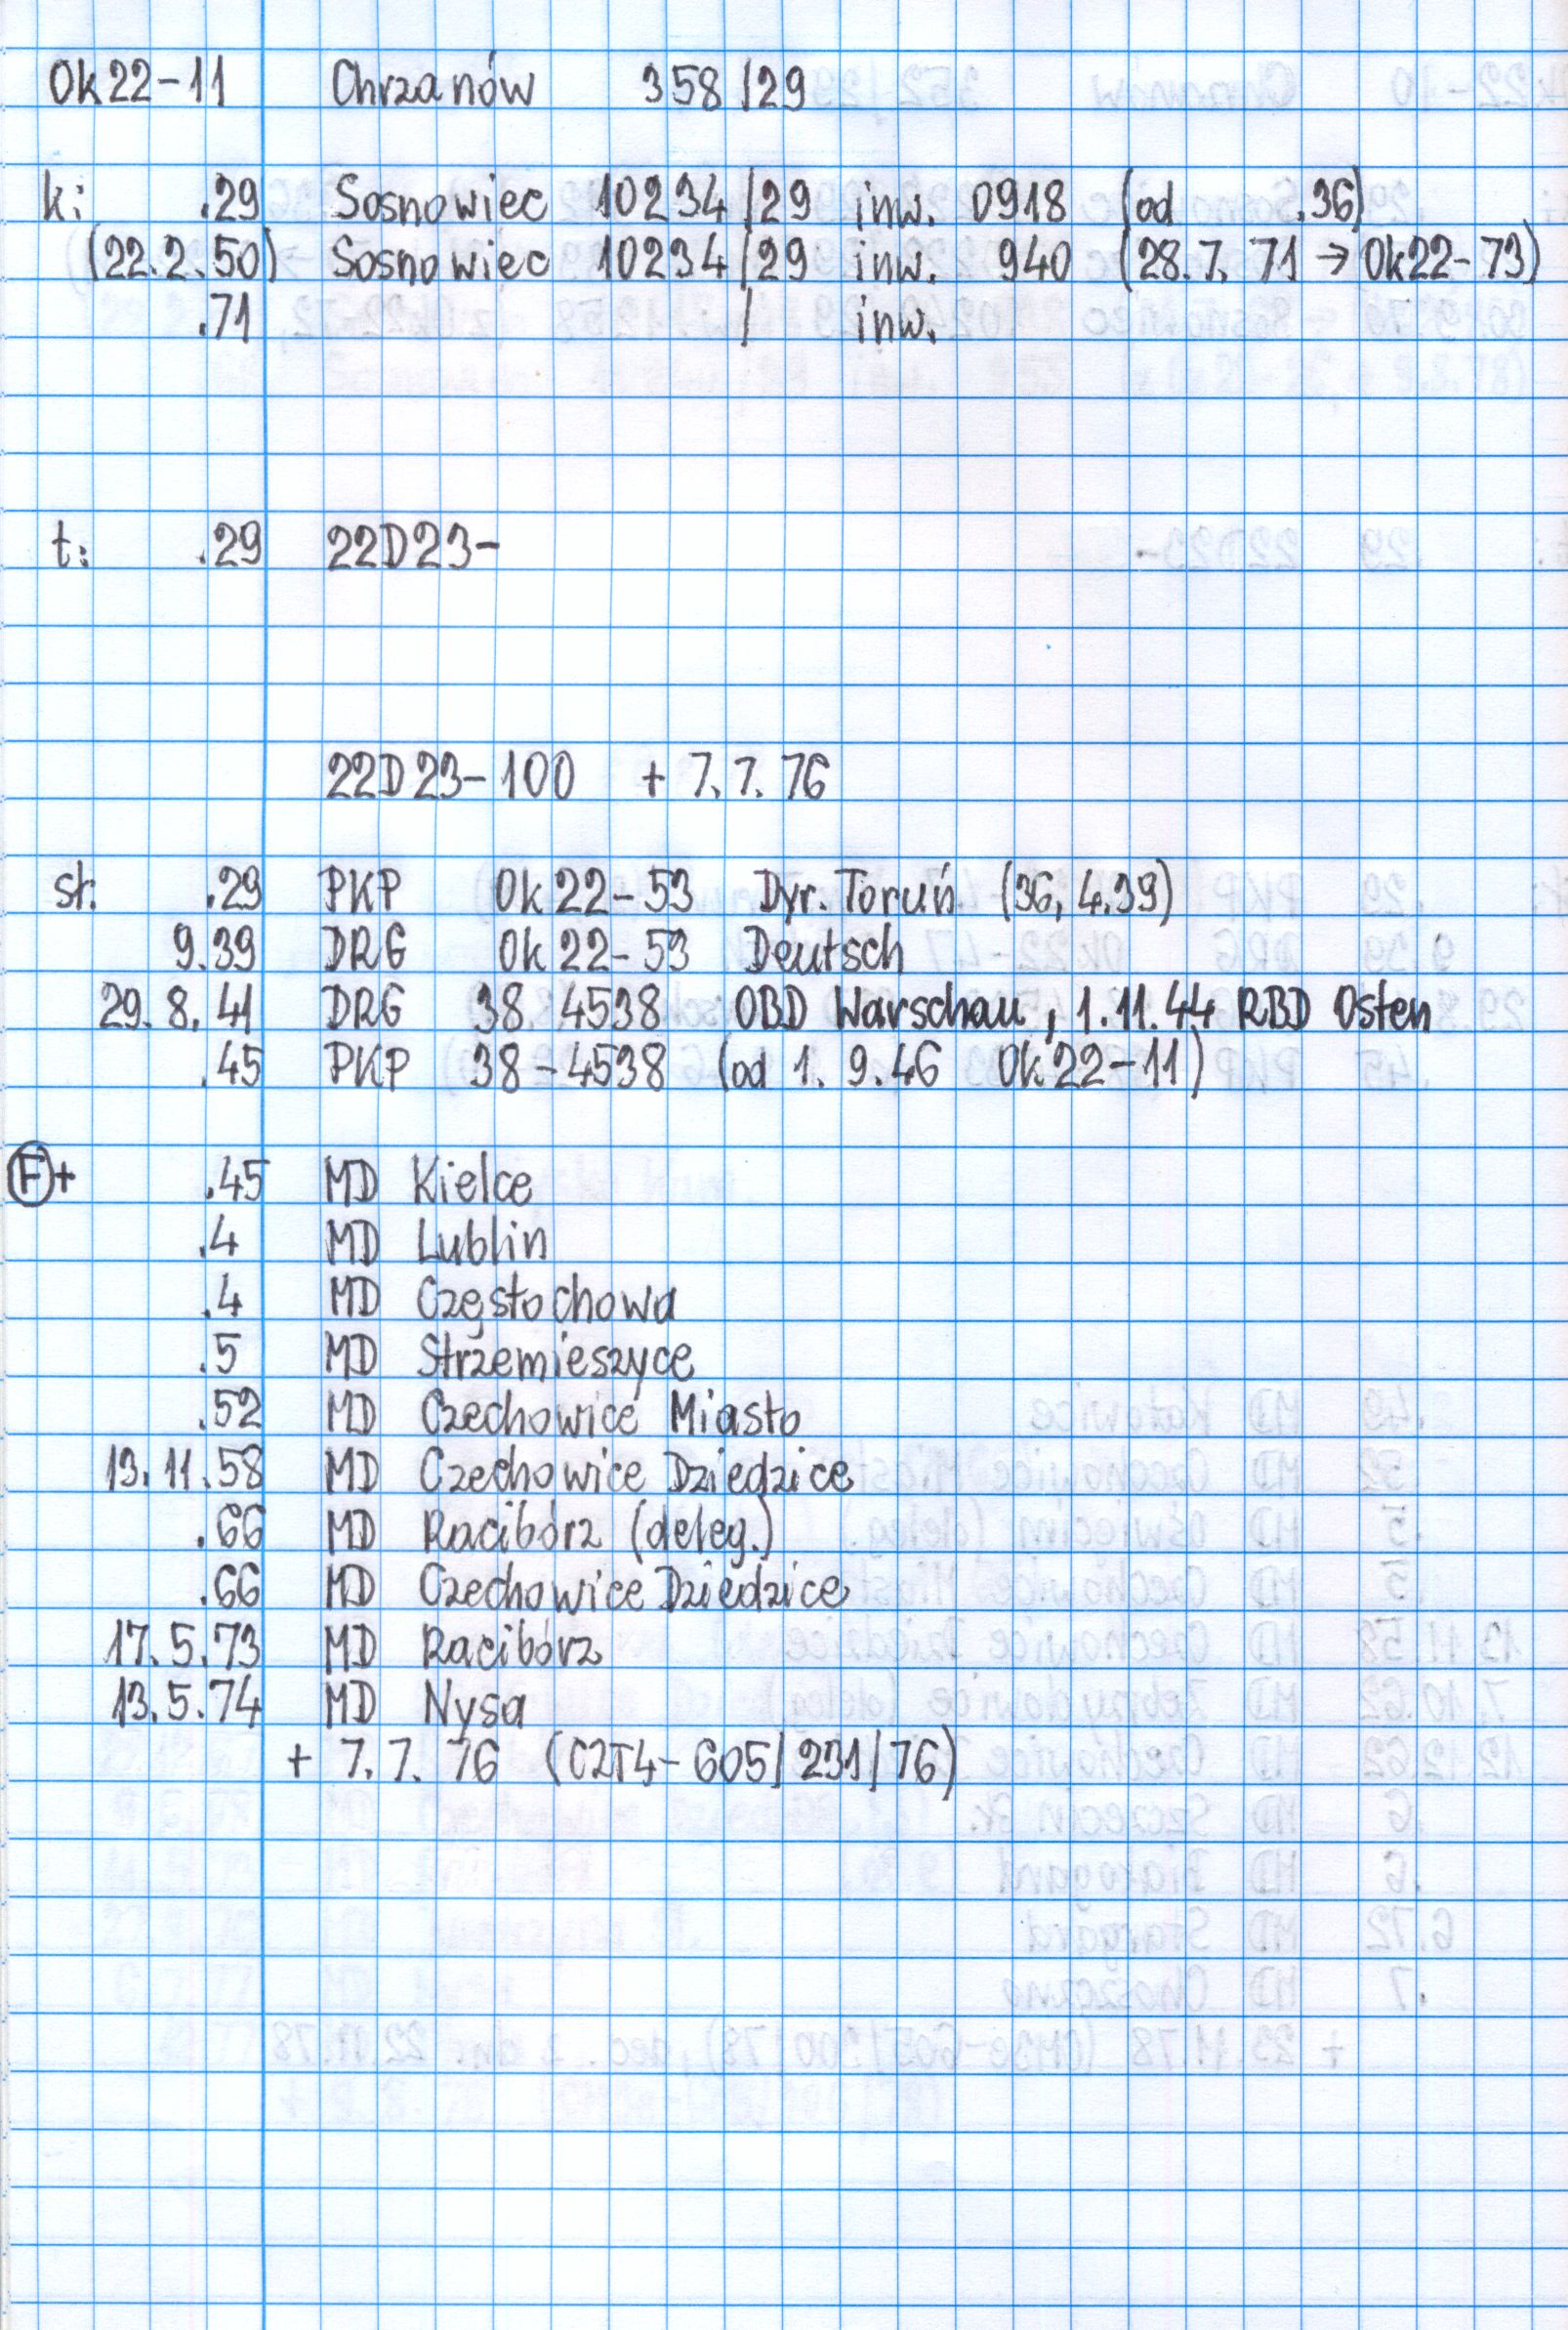 Ok22-11 Chrzanów 358/29
k: .29 Sosnowiec 10234/29 inw. 0918 (od .36)
(22.2.50) Sosnowiec 10234/29 inw. 940 (28.7.71 → Ok22-73)
.71 / inw.
t: .29 22D23-
22D23-100 + 7.7.76
st. .29 PKP Ok22-53 Dyr. Toruń (36, 4.39)
9.39 DRG Ok22-53 Deutsch
29.8.41 DRG 38 4538 OBD Warschau, 1.11.44 RBD Osten
.45 PKP 38-4538 (od 1.9.46 Ok22-11)
F+ .45 MD Kielce
.4 MD Lublin
.4 MD Częstochowa
.5 MD Strzemieszyce
.52 MD Czechowice Miasto
13.11.58 MD Czechowice Dziedzice
.66 MD Racibórz (deleg.)
.66 MD Czechowice Dziedzice
17.5.73 MD Racibórz
13.5.74 MD Nysa
+ 7.7.76 (C2T4-605/231/76)